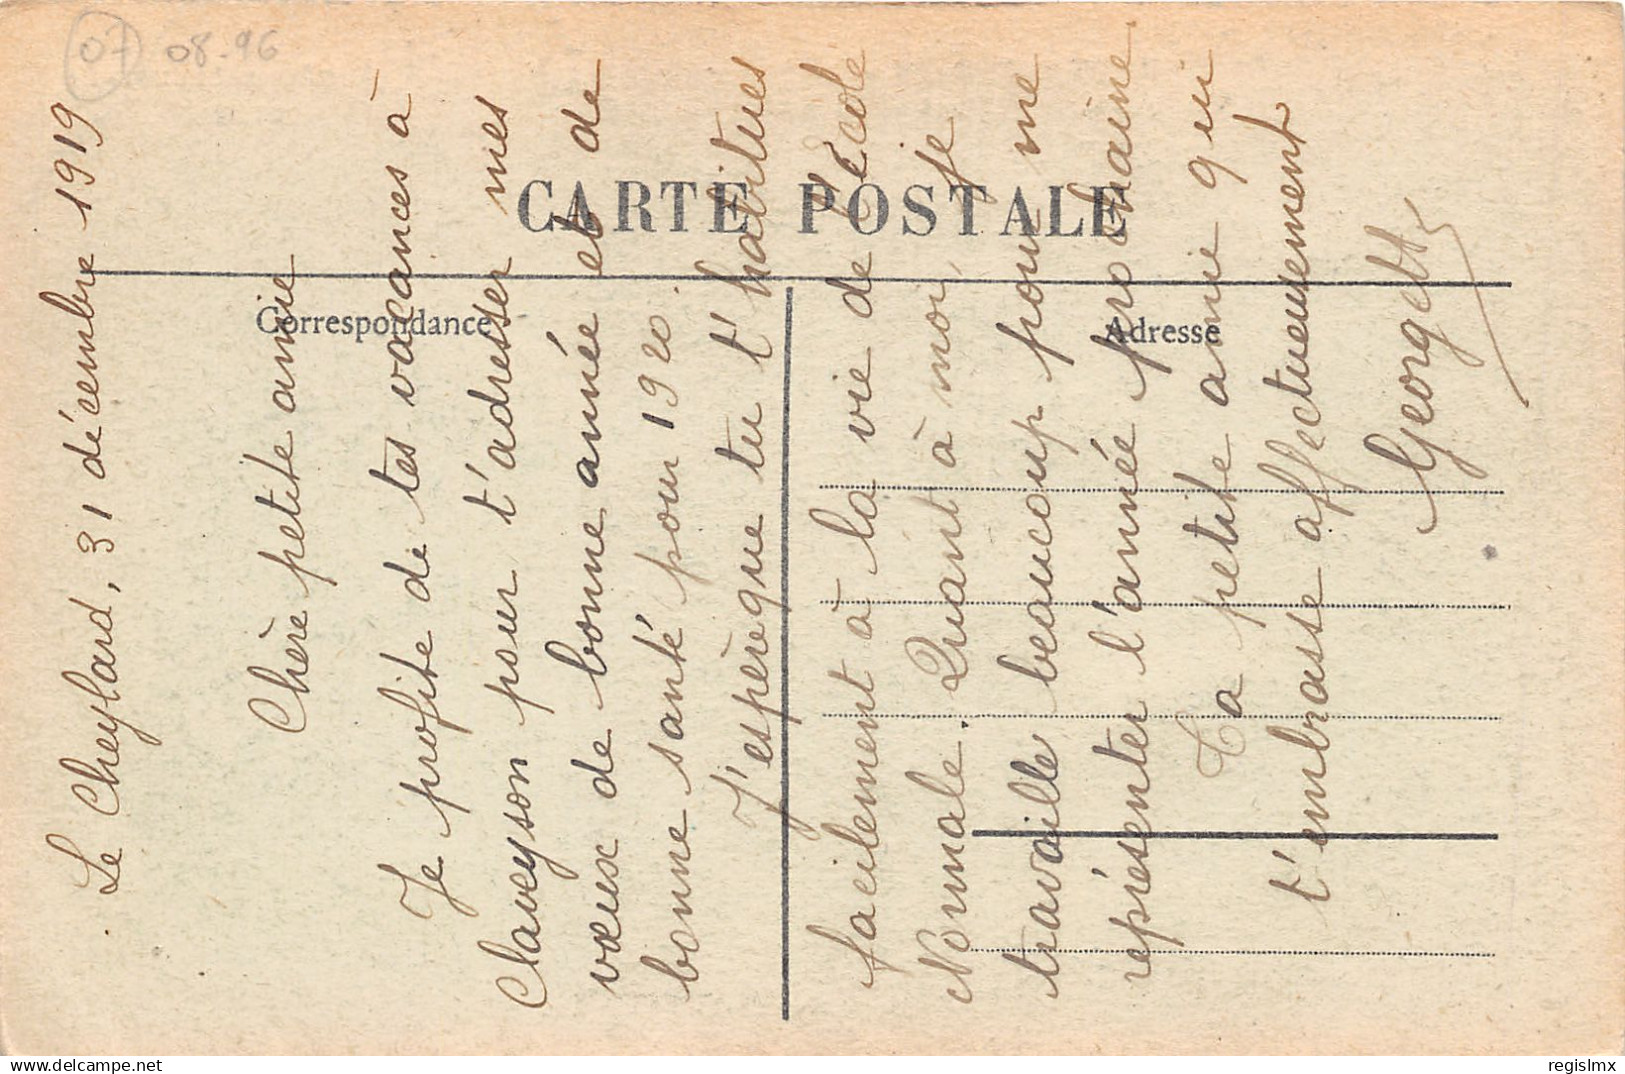 07 08-96
CARTE POSTALE
Correspondance
Adresse
Le Cheylard, 31 décembre 1919
Chère petite amie
Je profite de tes vacances à
Claveyson pour t'adresser mes
vœux de bonne année et de
bonne santé pour 1920.
J'espère que tu t'habitues
facilement à la vie de l'école
Normale. Quant à moi, je
travaille beaucoup pour me
représenter l'année prochaine
Ta petite amie qui
t'embrasse affectueusement
Georgette
delcampe.net
regislmx